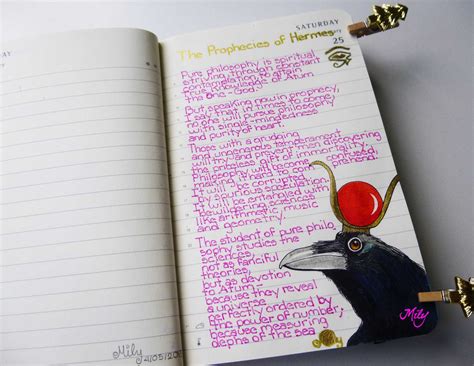 SATURDAY
25
The Prophecies of Hermes
Pure philosophy is spiritual
striving through constant
contemplation to attain
true knowledge of Atum
the One - God.
But, speaking now in prophecy,
I say that in times to come,
no one will pursue philosophy
with single-mindedness
and purity of heart.
Those with a grudging
and ungenerous temperament
will try and prevent men discovering
the priceless gift of immortality.
Philosophy will become confused,
making it hard to com- prehend.
It will be corrupted
by spurious speculation.
It will be entangled with
bewildering sciences
like arithmetic, music
and geometry.
The student of pure philo
sophy studies the
sciences,
not as fanciful
theories,
but as devotion
to Atum -
because they reveal
a universe
perfectly ordered by
the power of number;
because measuring
dephs of the sea
Mily
Mily
Mily